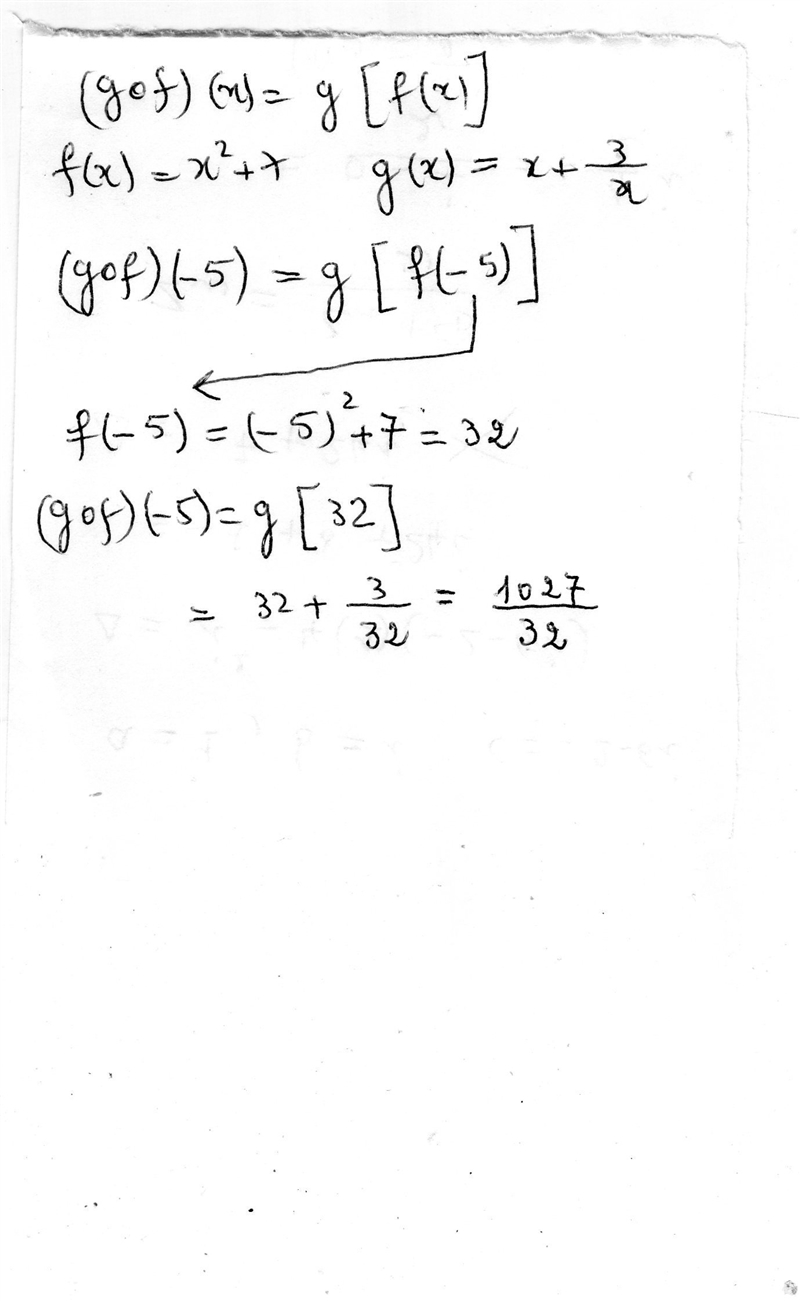 (gof)(x) = g[f(x)]
f(x) = x²+7 g(x) = x+ 3/x
(gof)(-5) = g[f(-5)]
f(-5) = (-5)²+7 = 32
(gof)(-5) = g[32]
= 32 + 3/32 = 1027/32